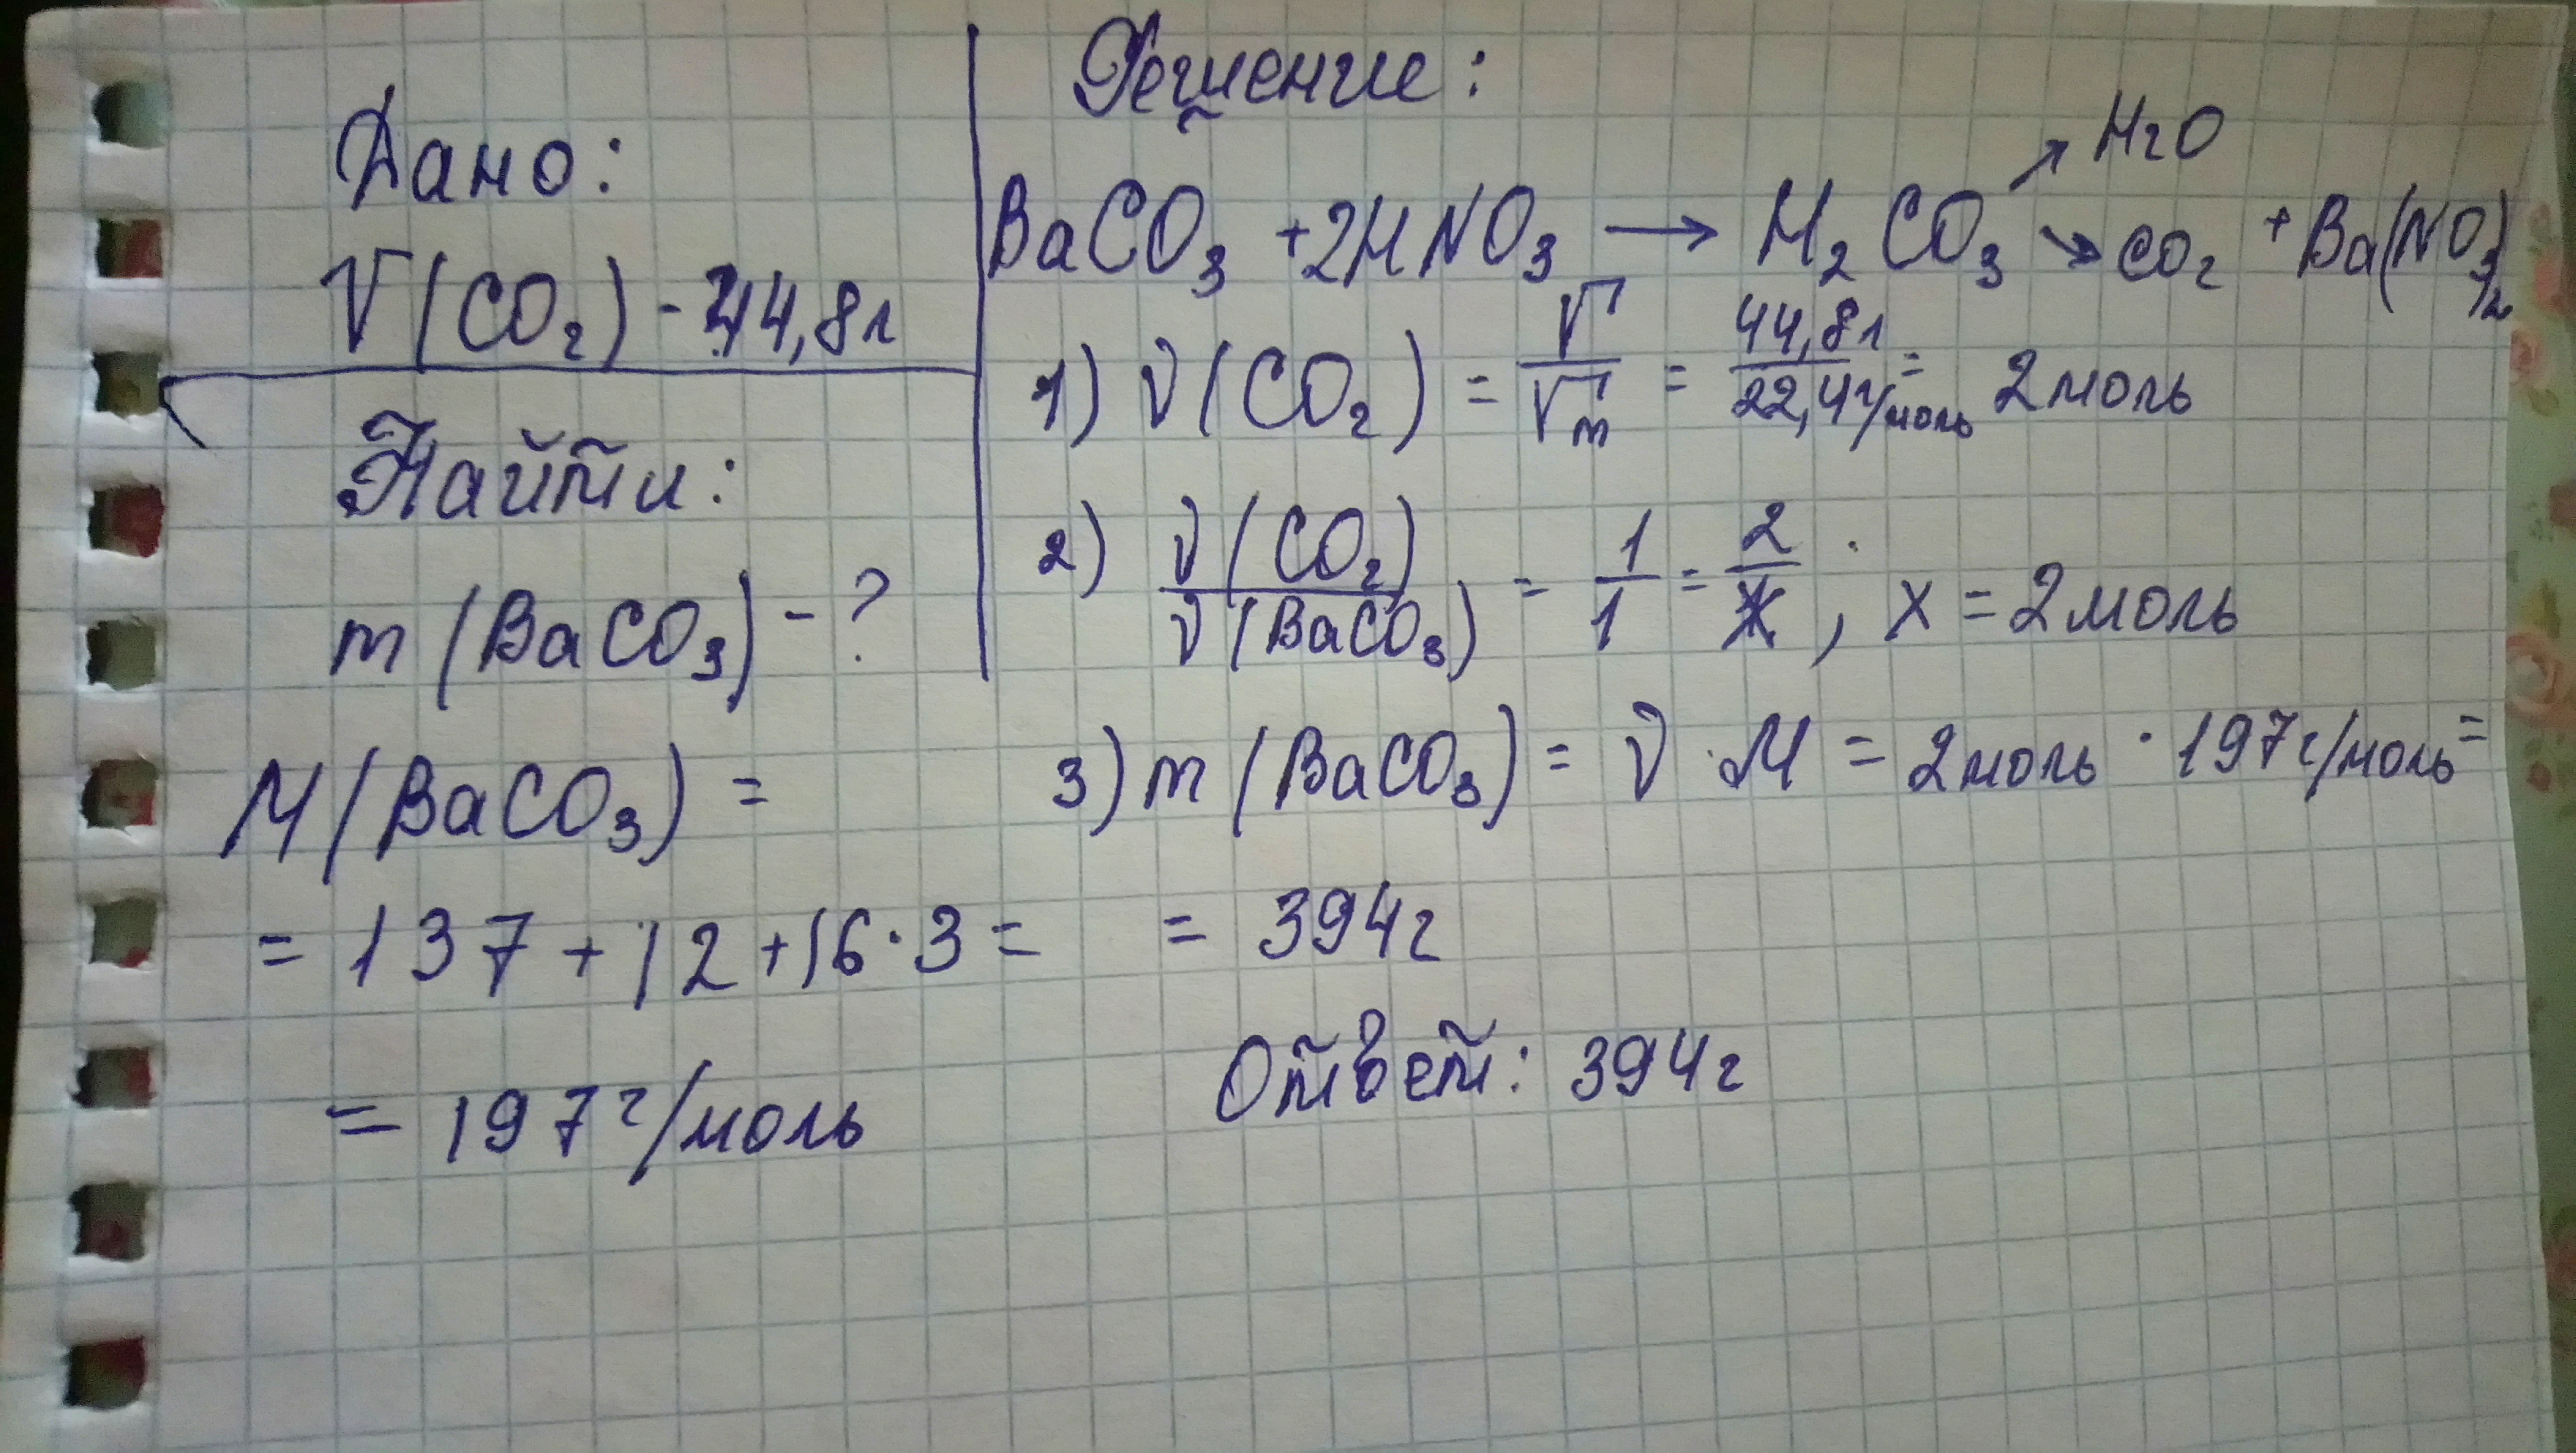 Дано:
V(CO₂) - 44,8л
Найти:
m(BaCO₃) - ?
M(BaCO₃) =
= 137 + 12 + 16 · 3 =
= 197 г/моль
Решение:
BaCO₃ + 2HNO₃ → H₂CO₃ ↗ H₂O ↘ CO₂ + Ba(NO₃)₂
1) ν(CO₂) = V/Vm = 44,8л/22,4г/моль = 2 моль
2) ν(CO₂)/ν(BaCO₃) = 1/1 = 2/x , x = 2 моль
3) m(BaCO₃) = ν · M = 2 моль · 197 г/моль =
= 394 г
Ответ: 394 г